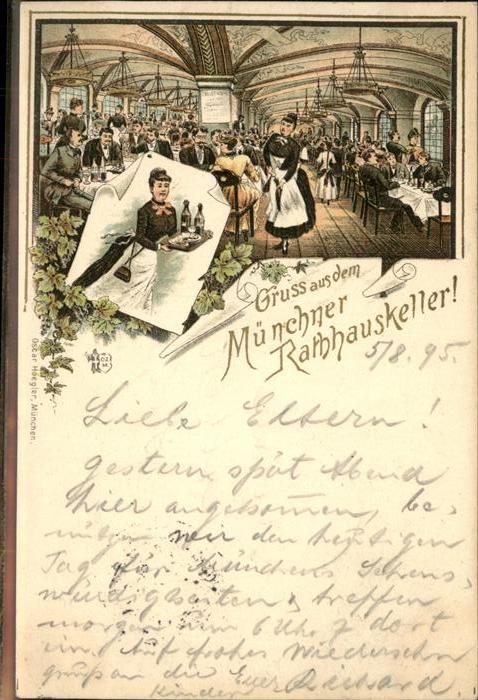 Gruss aus dem
Münchner
Rathhauskeller!
5/8. 95.
Oscar Hoegler, München.
Liebe Eltern!
gestern spät Abend
hier angekommen, be-
nützen wir den heutigen
Tag für Münchens Sehens-
würdigkeiten & treffen
morgen um 6 Uhr 7 dort
ein. Auf frohes Wiedersehn
gruss an die Euer Richard
Kinder